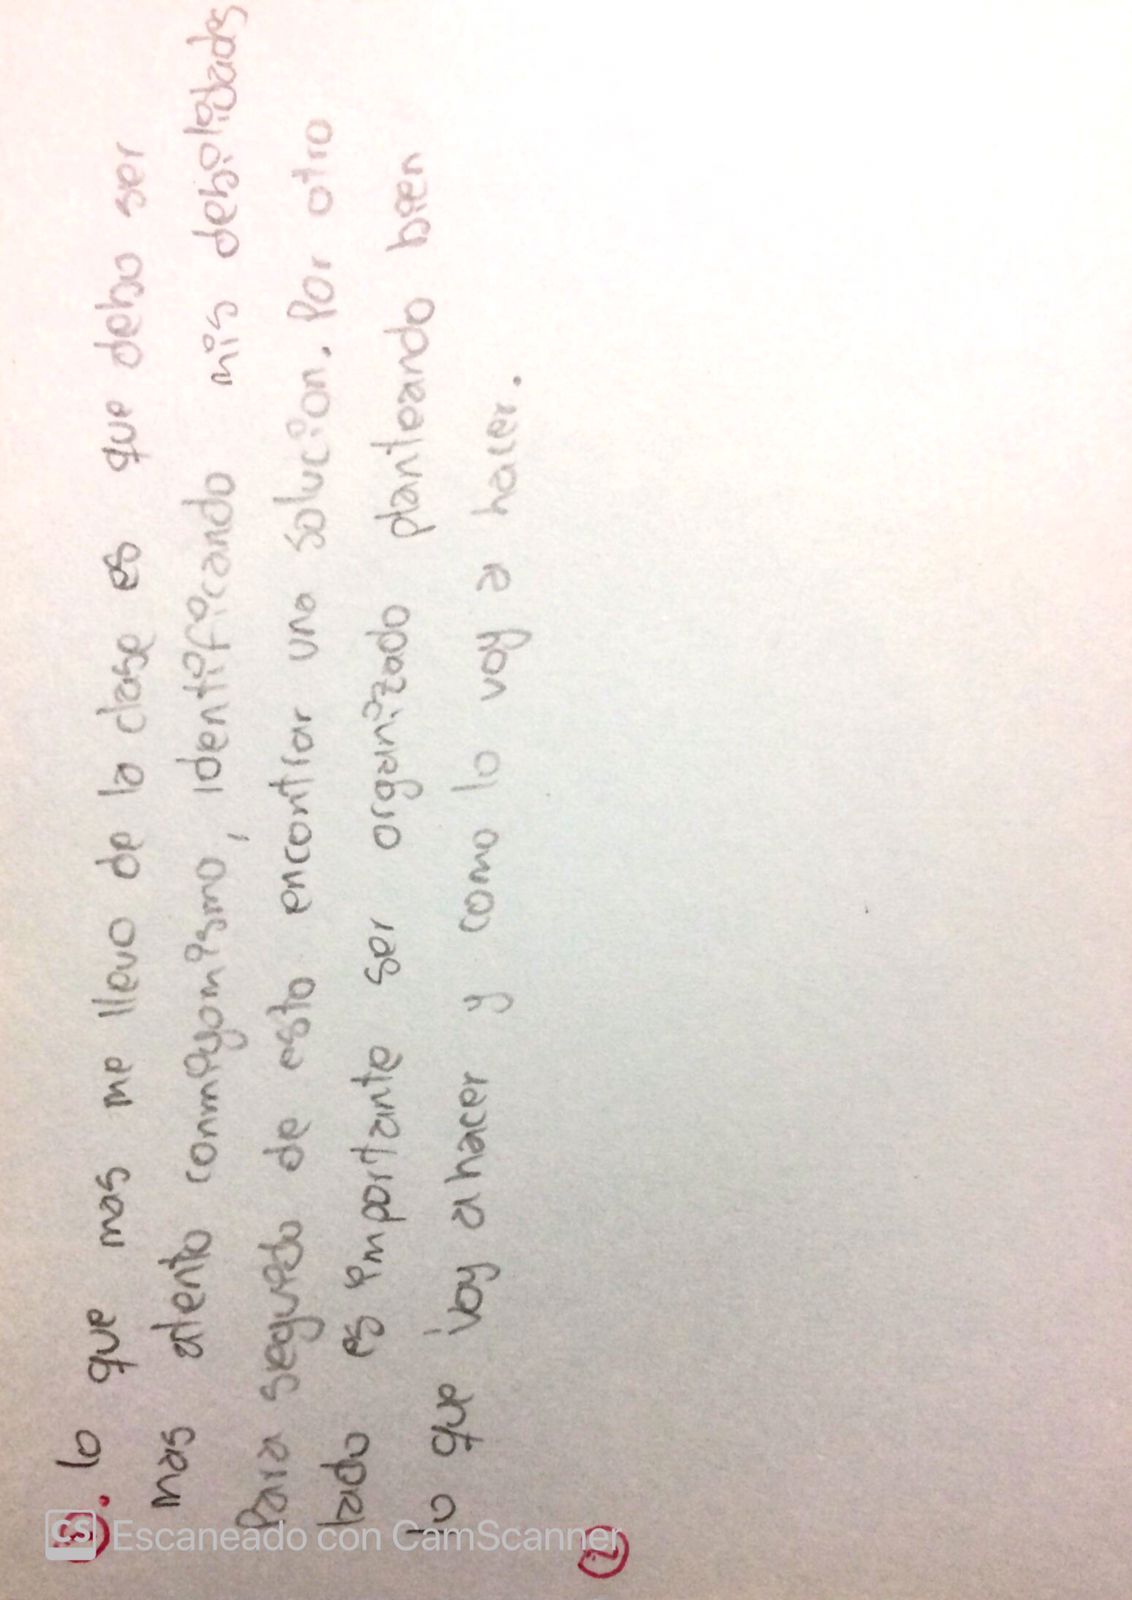 lo que mas me llevo de la clase es que debo ser
mas atento conmigomismo, identificando mis debilidades
Para seguido de esto encontrar una solucion. Por otro
lado es importante ser organizado planteando bien
lo que voy a hacer y como lo voy a hacer.
CS Escaneado con CamScanner